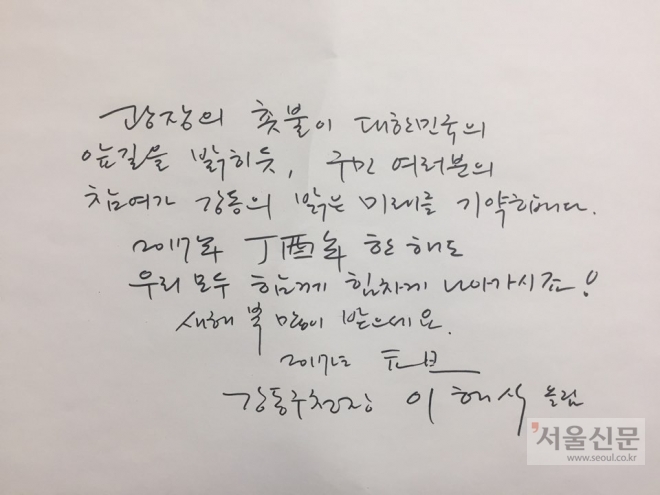 광장의 촛불이 대한민국의
앞길을 밝히듯, 구민 여러분의
참여가 강동의 밝은 미래를 기약합니다.
2017年 丁酉年 한 해도
우리 모두 함께 힘차게 나아가시죠!
새해 복 많이 받으세요.
2017년
강동구청장 이해식 올림
서울신문
www.seoul.co.kr